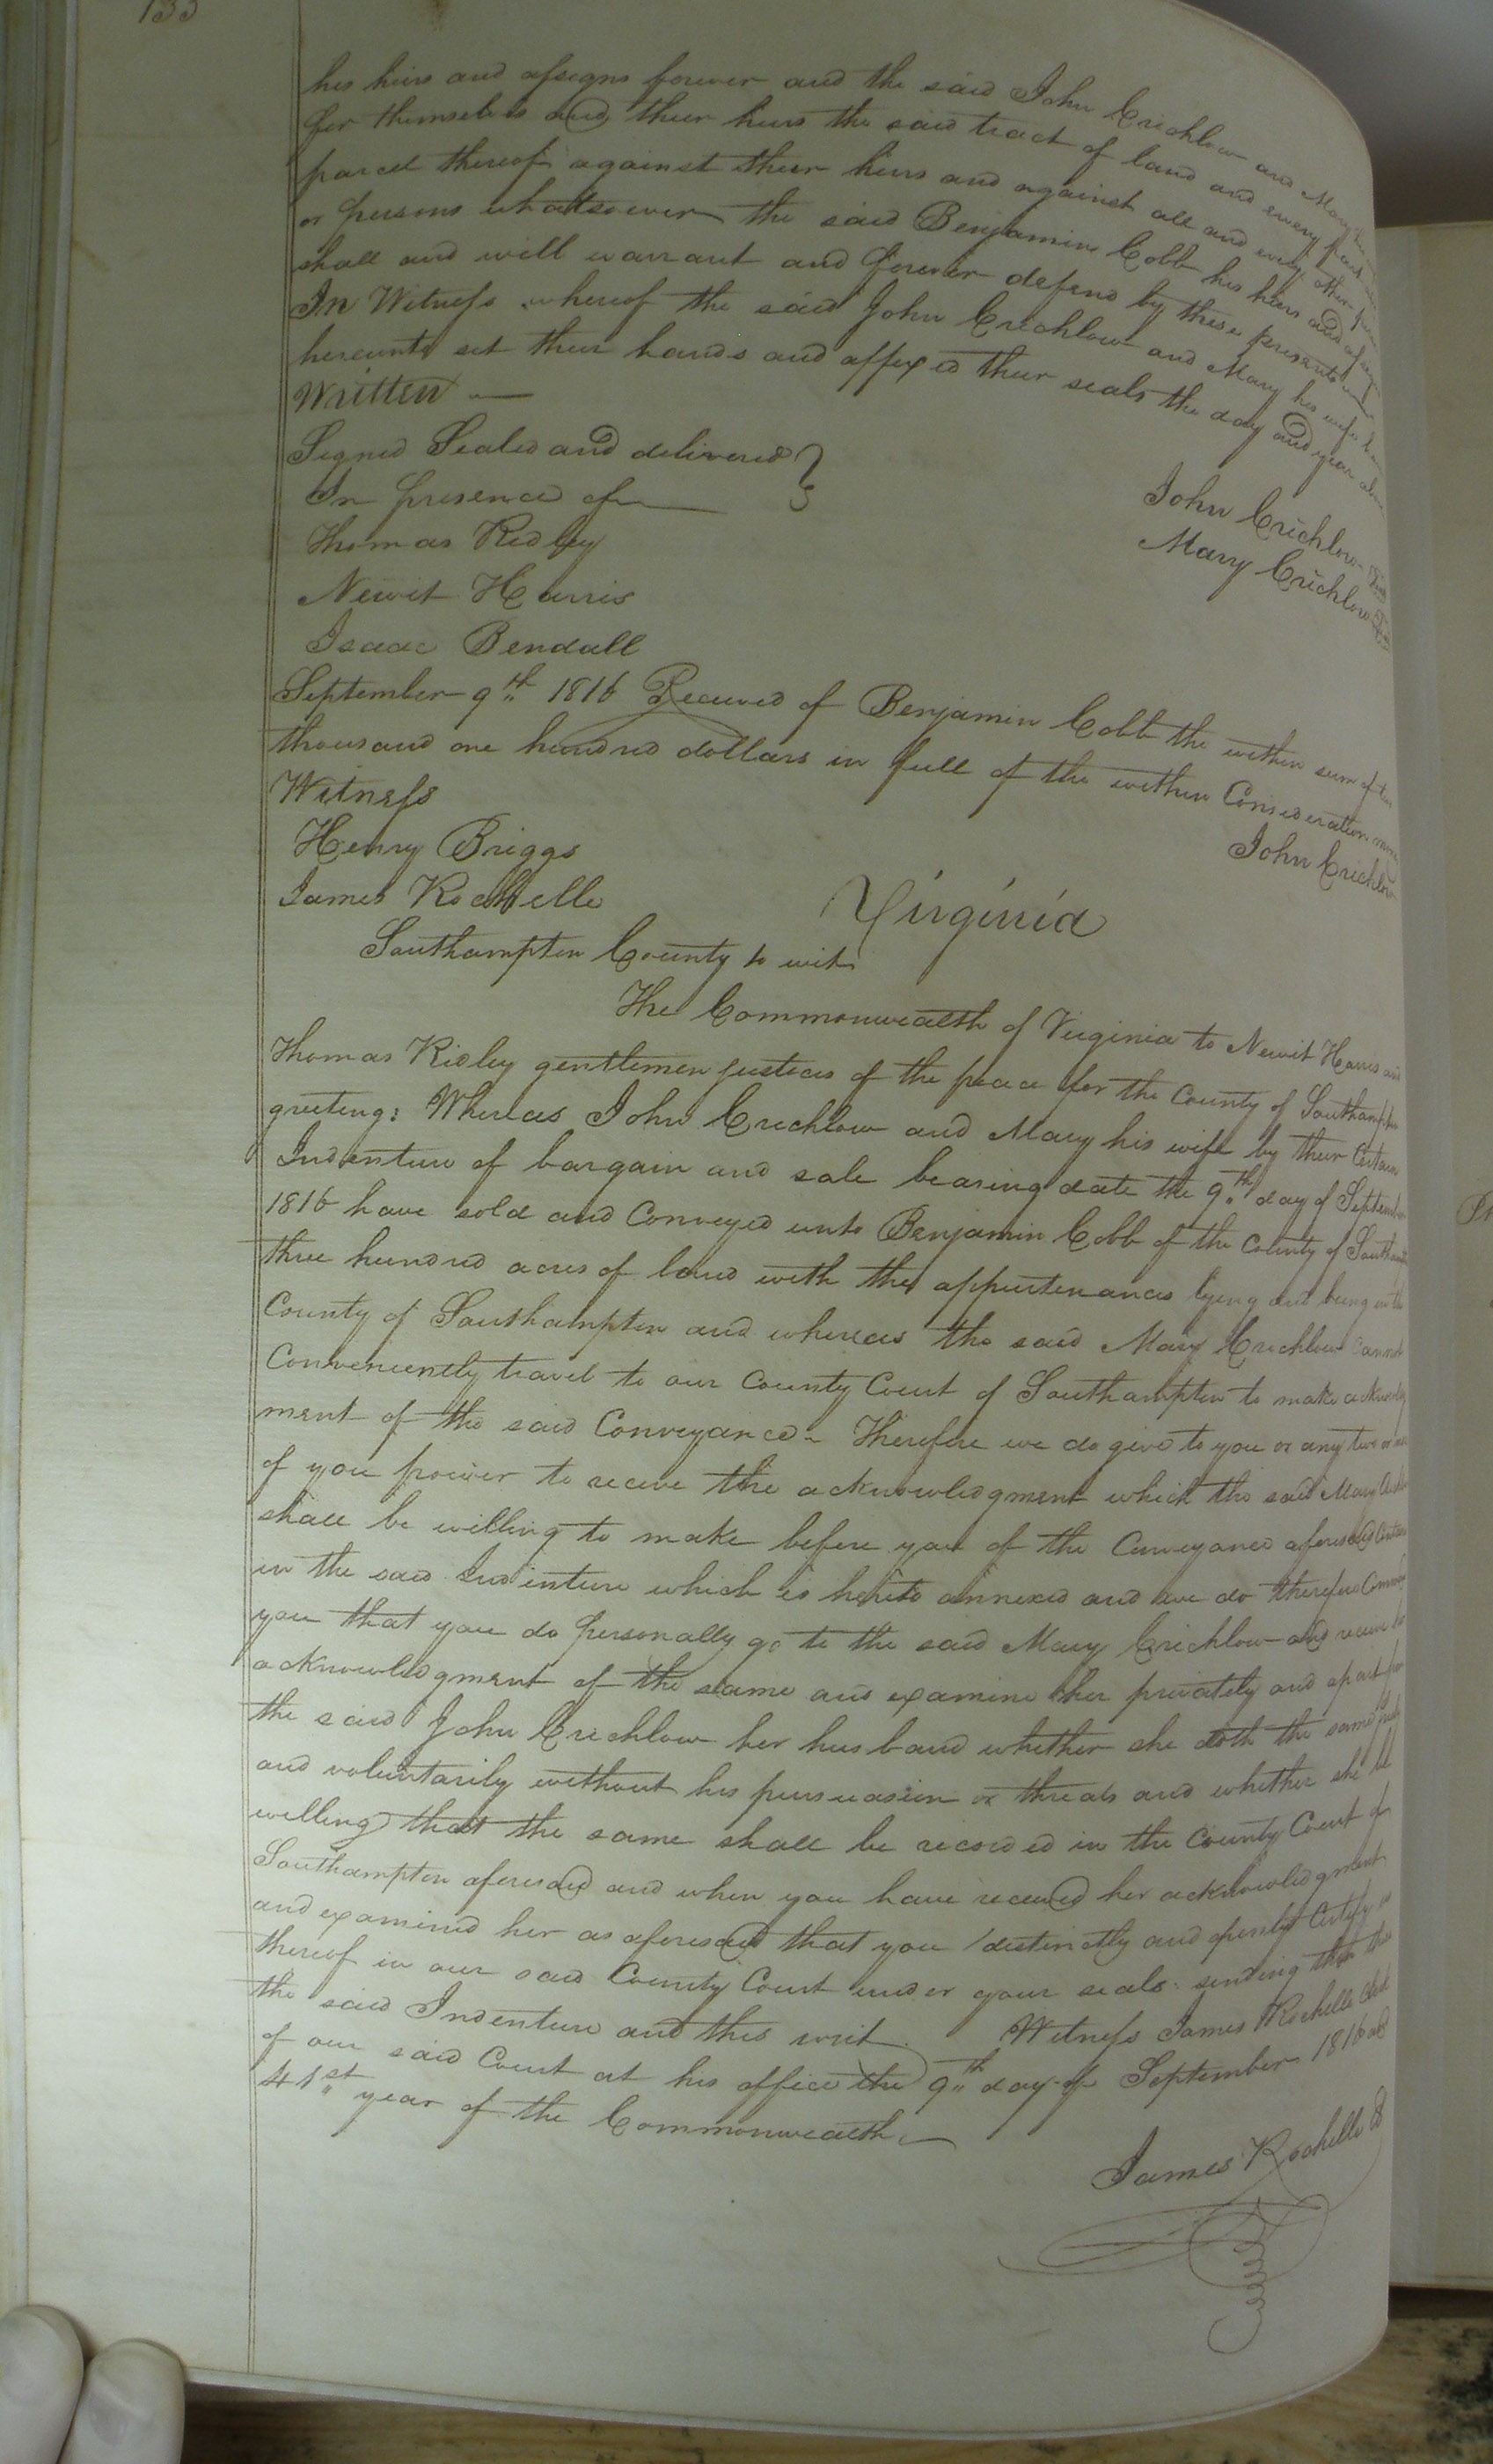 133
his heirs and assigns forever and the said John Crichlow and Mary his
for themselves and their heirs the said tract of land and every part
parcel thereof against their heirs and against all and every other
or persons whatsoever the said Benjamin Cobb his heirs and assigns
shall and will warrant and forever defend by these presents
In Witness whereof the said John Crichlow and Mary his wife
hereunto set their hands and affixed their seals the day and year
Written
Signed Sealed and delivered
In presence of
John Crichlow
Thomas Ridley
Mary Crichlow
Newit Harris
Isaac Bendall
September 9th 1816 Received of Benjamin Cobb the within sum of
thousand one hundred dollars in full of the within Consideration
Witness
John Crichlow
Henry Briggs
James Rochelle
Virginia
Southampton County to wit
The Commonwealth of Virginia to Newit Harris and
Thomas Ridley gentlemen justices of the peace for the County of Southampton
greeting: Whereas John Crichlow and Mary his wife by their Certain
Indenture of bargain and sale bearing date the 9th day of September
1816 have sold and Conveyed unto Benjamin Cobb of the County of Southampton
three hundred acres of land with the appurtenances lying and being in the
County of Southampton and whereas the said Mary Crichlow cannot
Conveniently travel to our County Court of Southampton to make acknowledg
ment of the said Conveyance - Therefore we do give to you or any two or
of you power to receive the acknowledgment which the said Mary
shall be willing to make before you of the Conveyance aforesaid
in the said Indenture which is hereto annexed and we do therefore
you that you do personally go to the said Mary Crichlow and receive
acknowledgment of the same and examine her privately and apart from
the said John Crichlow her husband whether she doth the same
and voluntarily without his persuasion or threats and whether she be
willing that the same shall be recorded in the County Court of
Southampton aforesaid and when you have received her acknowledgment
and examined her as aforesaid that you distinctly and openly Certify
thereof in our said County Court under your seals sending then
the said Indenture and this writ. Witness James Rochelle Clerk
of our said Court at his office the 9th day of September 1816
41st year of the Commonwealth
James Rochelle